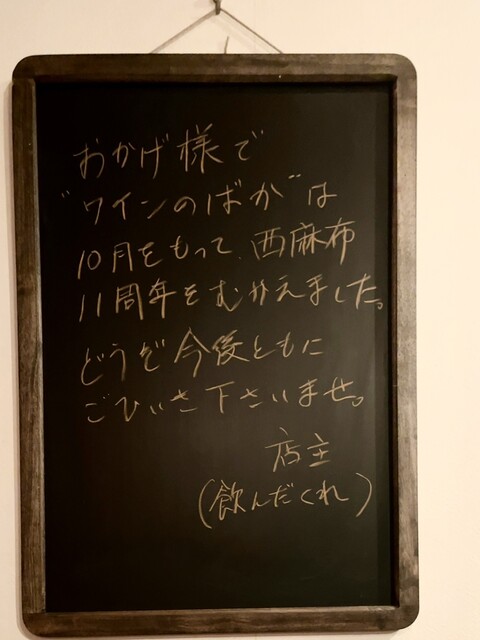 おかげ様で
"ワインのばか"は
10月をもって、西麻布
11周年をむかえました。
どうぞ今後ともに
ごひいき下さいませ。
店主
(飲んだくれ)